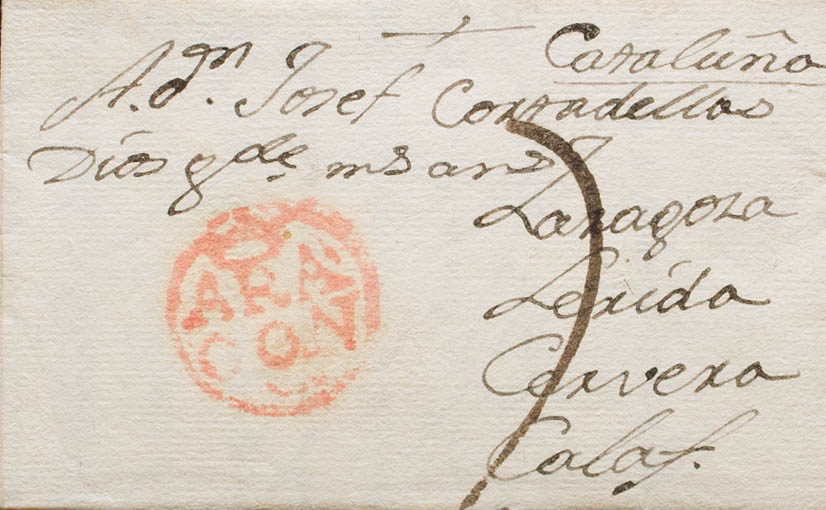 Cataluña
A. dⁿ. Josef Cortadellas
Dios gde ms ans
Zaragoza
Lerida
Cervera
Calaf.
ARA